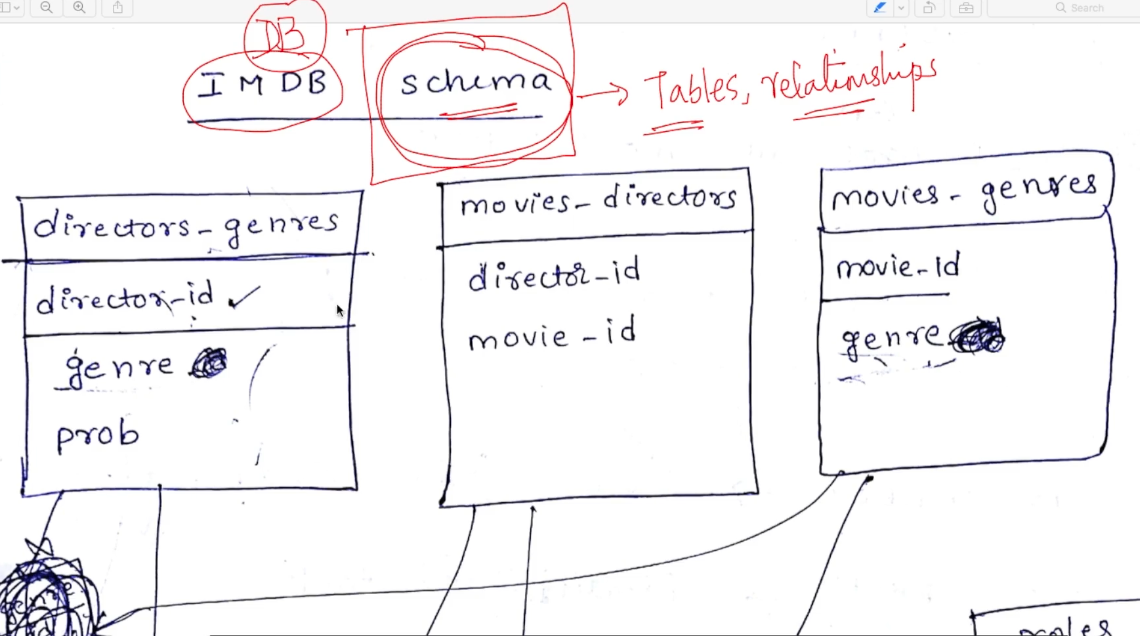 Search
DB
IMDB schema → Tables, relationships
directors-genres
director-id ✓
genre
prob
movies-directors
director-id
movie-id
movies-genres
movie-id
genre